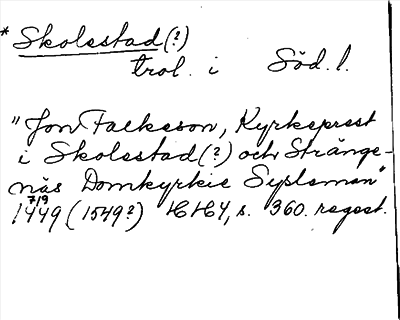 * Skolsstad (?)
trol. i Söd. l.
"Jon Falkeson, Kyrkeprest
i Skolsstad (?) och Stränge-
näs Domkyrkie Sysloman"
7/9
1449 (1549?) HH4, s. 360. regest.